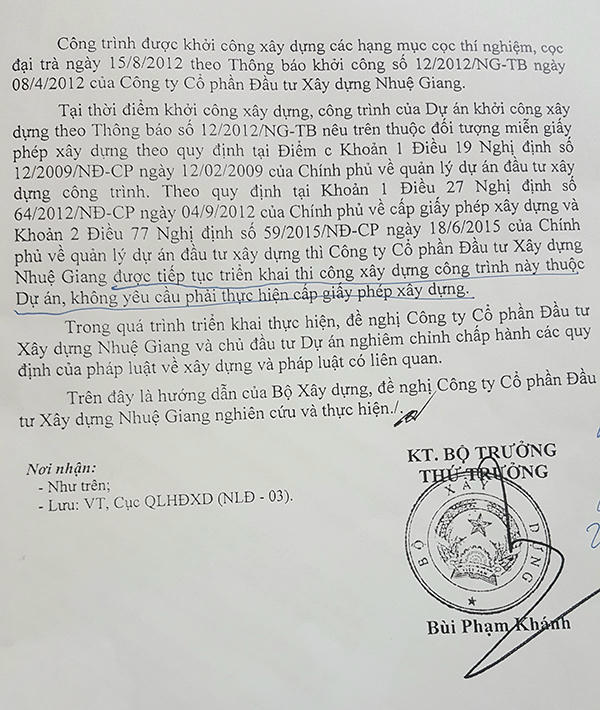 Công trình được khởi công xây dựng các hạng mục cọc thí nghiệm, cọc
đại trà ngày 15/8/2012 theo Thông báo khởi công số 12/2012/NG-TB ngày
08/4/2012 của Công ty Cổ phần Đầu tư Xây dựng Nhuệ Giang.
Tại thời điểm khởi công xây dựng, công trình của Dự án khởi công xây
dựng theo Thông báo số 12/2012/NG-TB nêu trên thuộc đối tượng miễn giấy
phép xây dựng theo quy định tại Điểm c Khoản 1 Điều 19 Nghị định số
12/2009/NĐ-CP ngày 12/02/2009 của Chính phủ về quản lý dự án đầu tư xây
dựng công trình. Theo quy định tại Khoản 1 Điều 27 Nghị định số
64/2012/NĐ-CP ngày 04/9/2012 của Chính phủ về cấp giấy phép xây dựng và
Khoản 2 Điều 77 Nghị định số 59/2015/NĐ-CP ngày 18/6/2015 của Chính
phủ về quản lý dự án đầu tư xây dựng thì Công ty Cổ phần Đầu tư Xây dựng
Nhuệ Giang được tiếp tục triển khai thi công xây dựng công trình này thuộc
Dự án, không yêu cầu phải thực hiện cấp giấy phép xây dựng.
Trong quá trình triển khai thực hiện, đề nghị Công ty Cổ phần Đầu tư
Xây dựng Nhuệ Giang và chủ đầu tư Dự án nghiêm chỉnh chấp hành các quy
định của pháp luật về xây dựng và pháp luật có liên quan.
Trên đây là hướng dẫn của Bộ Xây dựng, đề nghị Công ty Cổ phần Đầu
tư Xây dựng Nhuệ Giang nghiên cứu và thực hiện./.
KT. BỘ TRƯỞNG
THỨ TRƯỞNG
Nơi nhận:
- Như trên;
- Lưu: VT, Cục QLHĐXD (NLĐ - 03).
BỘ XÂY DỰNG
Bùi Phạm Khánh